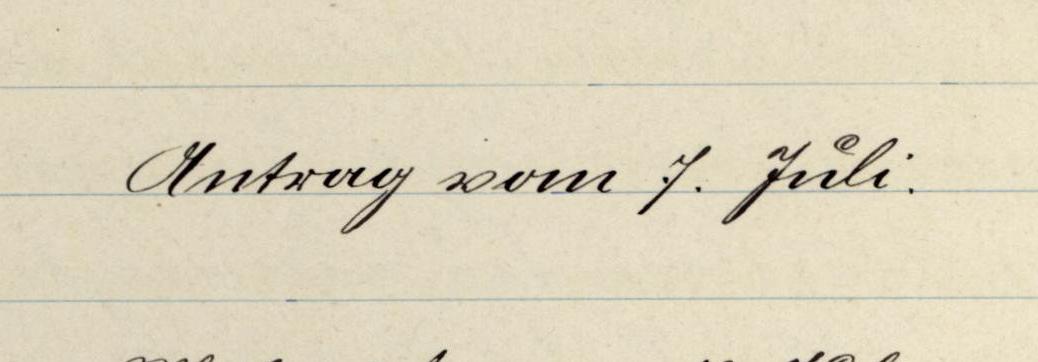 Antrag vom 7. Juli.